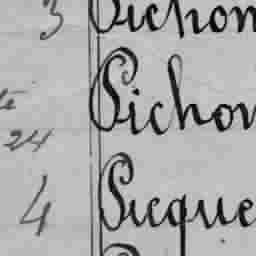 3 Pichon
Pichon
24
4 Picque